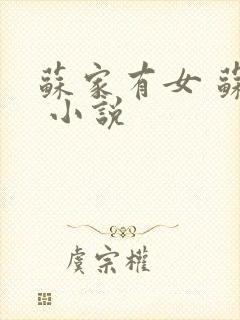 蘇家有女
小說
虞宗權